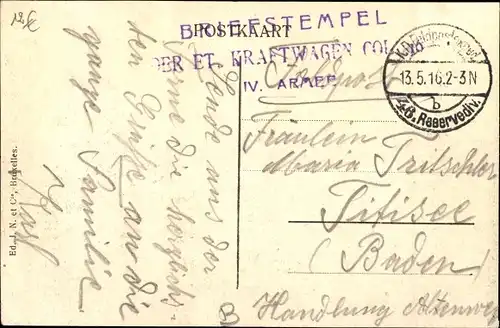 18€
POSTKAART
BRIEFSTEMPEL
DER ET. KRAFTWAGEN COL.
IV. ARMEE
Feldpost
13.5.16.2-3N
b
46. Reservediv.
Sende aus der
die herzlichs-
ten Grüße an die
ganze Familie
Fräulein
Maria Tritschler
Titisee
(Baden)
Handlung Altenweg
Ed. J. N. et Cie, Bruxelles.
B